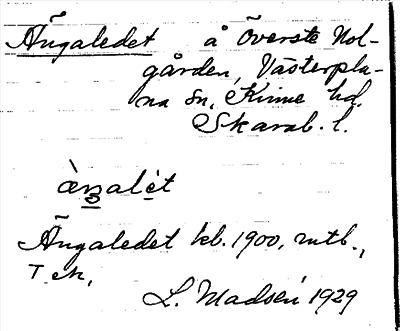 Ängaledet å Överste Nol-
gården, Västerpla-
na sn, Kinne hd,
Skarab. l.
ængalèt
Ängaledet kb. 1900, mtb.,
T. ek,
L. Madsén 1929